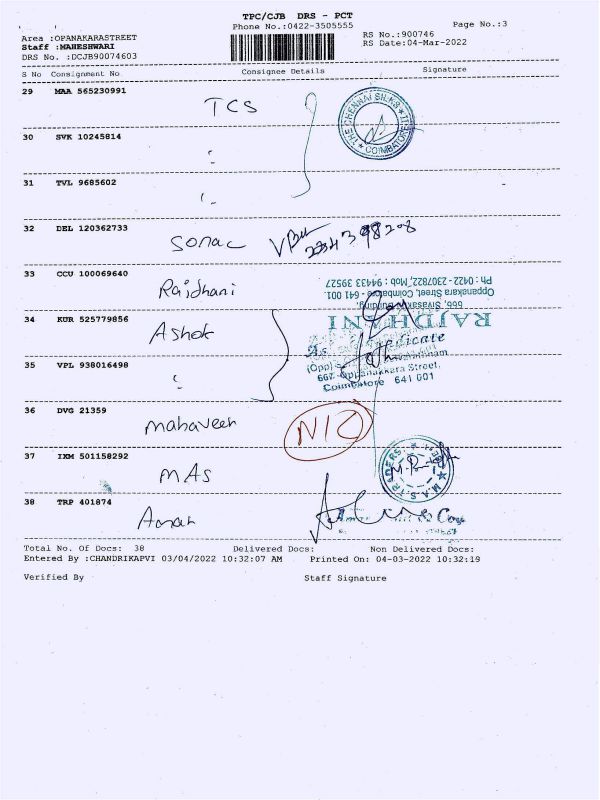 TPC/CJB DRS - PCT
Phone No.:0422-3505555
Page No.:3
Area :OPANAKARASTREET
RS No.:900746
Staff :MAHESHWARI
RS Date:04-Mar-2022
DRS No. :DCJB90074603
S No Consignment No Consignee Details Signature
29 MAA 565230991
TCS
THE CHENNAI SILKS COIMBATORE
30 SVK 10245814
31 TVL 9685602
32 DEL 120362733
Sonac
33 CCU 100069640
Rajdhani
RAJDHANI
666, Sivasakthi Building,
Oppanakara Street, Coimbatore - 641 001.
Ph : 0422 - 2307822, Mob : 94433 39527
34 KUR 525779856
Ashok
35 VPL 938016498
667, Oppanakkara Street,
Coimbatore 641 001
36 DVG 21359
Mahaveer
37 IXM 501158292
MAS
M.A.S.TRADERS
38 TRP 401874
Total No. Of Docs: 38 Delivered Docs: Non Delivered Docs:
Entered By :CHANDRIKAPVI 03/04/2022 10:32:07 AM Printed On: 04-03-2022 10:32:19
Verified By Staff Signature